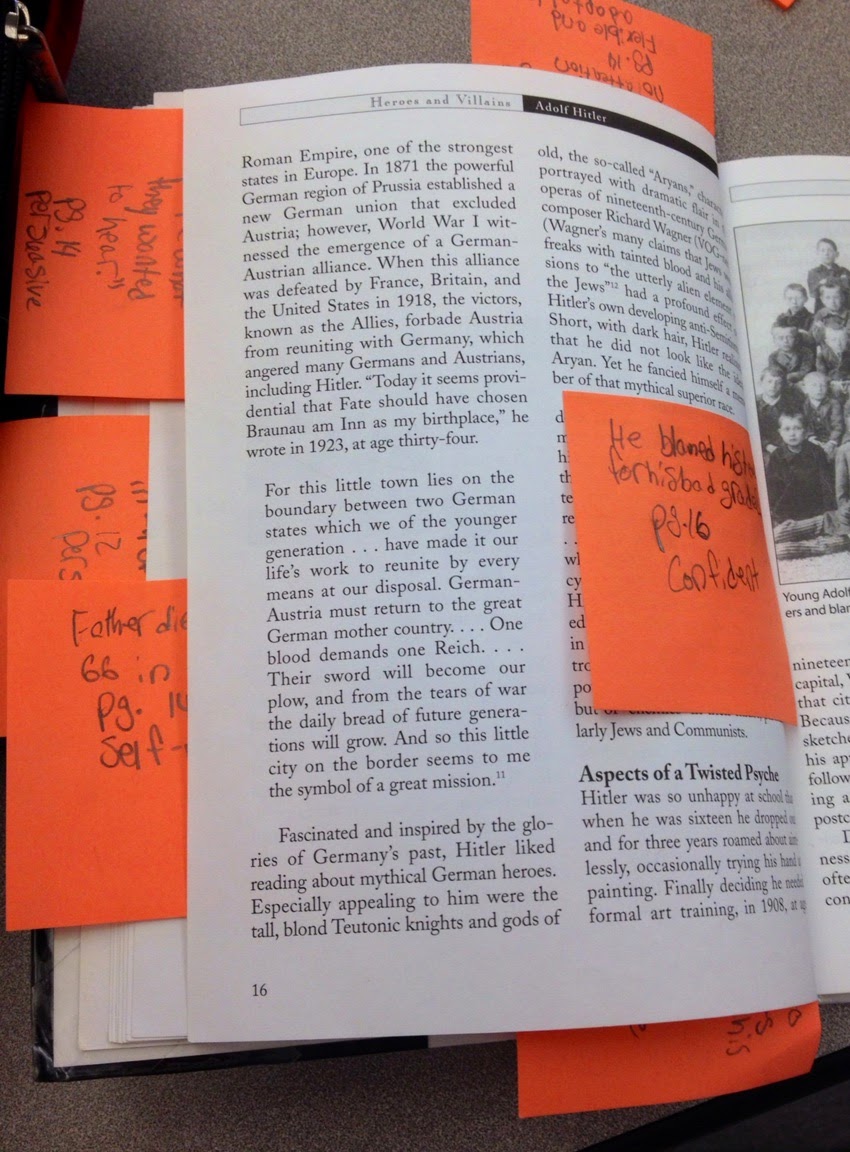 Heroes and Villains Adolf Hitler
Roman Empire, one of the strongest
states in Europe. In 1871 the powerful
German region of Prussia established a
new German union that excluded
Austria; however, World War I wit-
nessed the emergence of a German-
Austrian alliance. When this alliance
was defeated by France, Britain, and
the United States in 1918, the victors,
known as the Allies, forbade Austria
from reuniting with Germany, which
angered many Germans and Austrians,
including Hitler. “Today it seems provi-
dential that Fate should have chosen
Braunau am Inn as my birthplace,” he
wrote in 1923, at age thirty-four.
For this little town lies on the
boundary between two German
states which we of the younger
generation . . . have made it our
life’s work to reunite by every
means at our disposal. German-
Austria must return to the great
German mother country. . . . One
blood demands one Reich. . . .
Their sword will become our
plow, and from the tears of war
the daily bread of future genera-
tions will grow. And so this little
city on the border seems to me
the symbol of a great mission.11
Fascinated and inspired by the glo-
ries of Germany’s past, Hitler liked
reading about mythical German heroes.
Especially appealing to him were the
tall, blond Teutonic knights and gods of
16
old, the so-called “Aryans,”
portrayed with dramatic flair in
operas of nineteenth-century
composer Richard Wagner
(Wagner’s many claims that Jews
freaks with tainted blood and his
sions to “the utterly alien element
the Jews”12 had a profound effect
Hitler’s own developing
Short, with dark hair, Hitler
that he did not look like the
Aryan. Yet he fancied himself a
ber of that mythical superior race.
but
larly Jews and Communists.
Aspects of a Twisted Psyche
Hitler was so unhappy at school
when he was sixteen he dropped
and for three years roamed about
lessly, occasionally trying his hand
painting. Finally deciding he
formal art training, in 1908, at
He blamed
for his bad
pg.16
Confident
they wanted
to hear."
pg.14
persuasive
pg. 12
Father
66 in
pg.
Self-
pg.14
Flexible and
his
Young Adolf
ers and
capital,
that
his
ing a